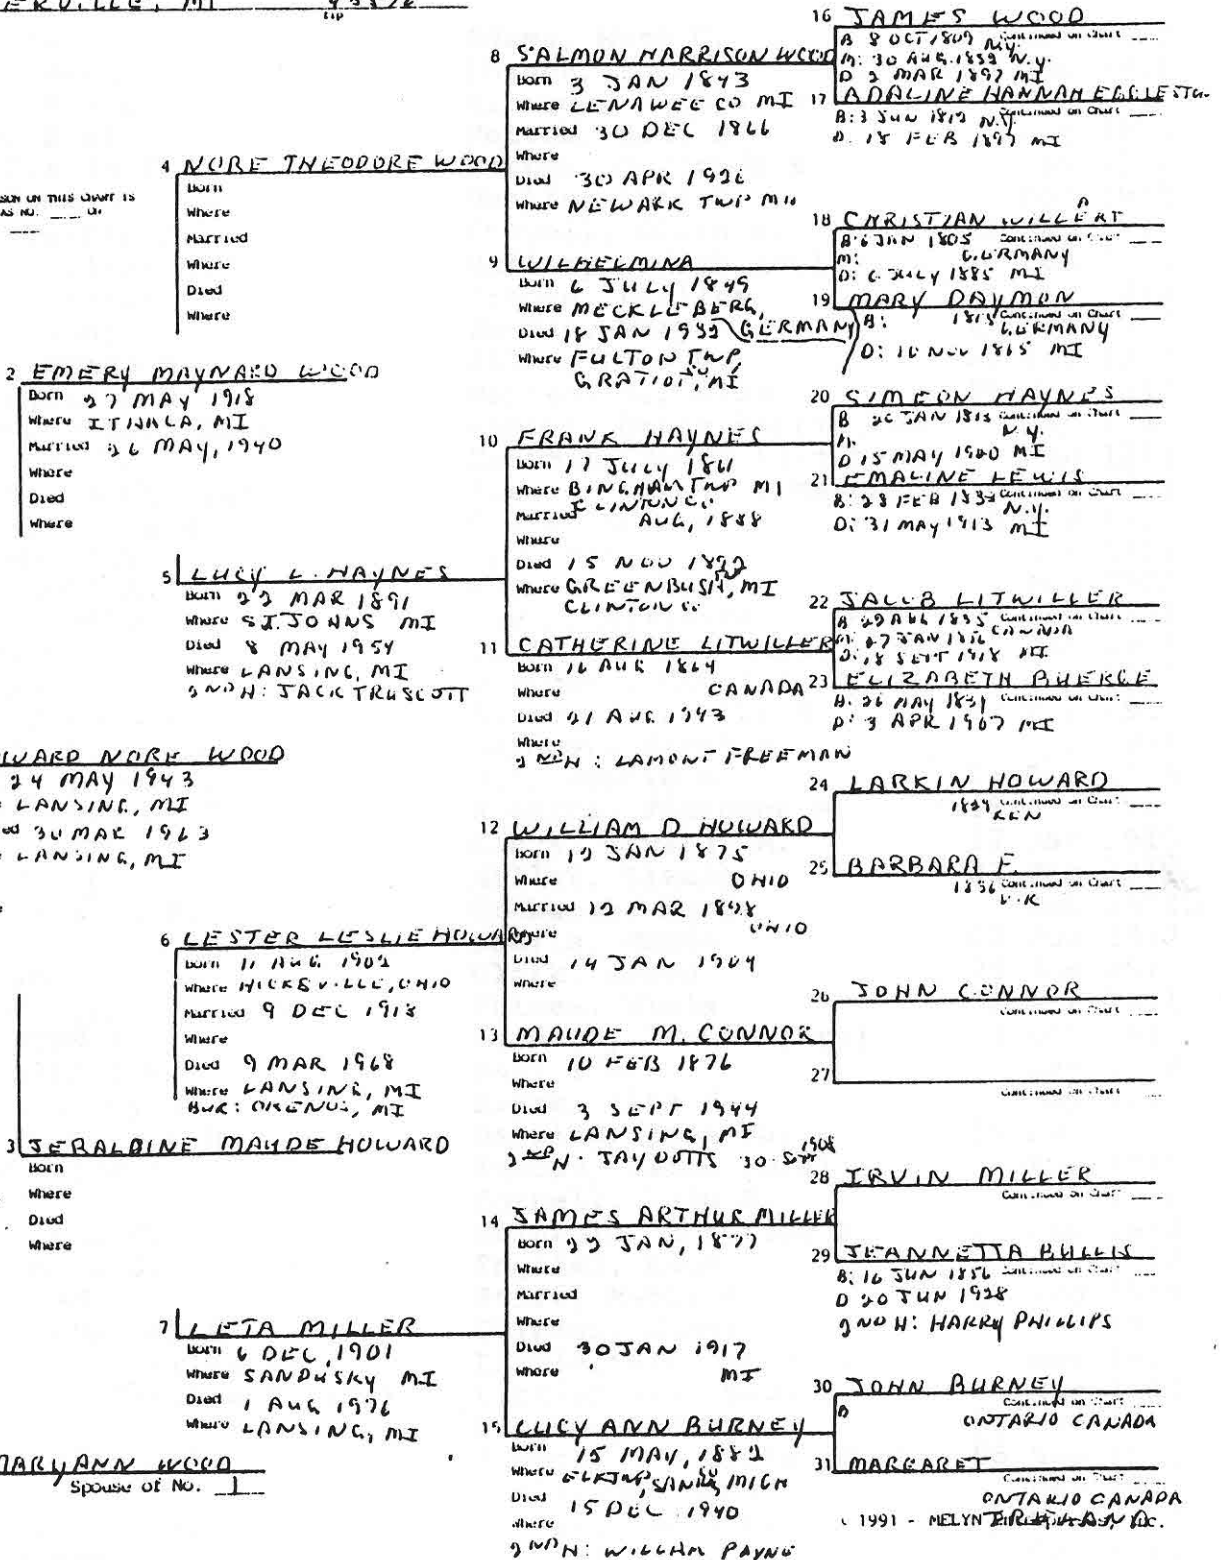 ERVILLE, MI
Zip
SON ON THIS CHART IS
AS NO. ____ ON
____
2 EMERY MAYNARD WOOD
Born 27 MAY 1918
Where ITHACA, MI
Married 26 MAY, 1940
Where
Died
Where
WARD NORE WOOD
24 MAY 1943
LANSING, MI
ed 30 MAR 1963
LANSING, MI
3 JERALDINE MAUDE HOWARD
Born
Where
Died
Where
MARYANN WOOD
Spouse of No. 1
4 NORE THEODORE WOOD
Born
Where
Married
Where
Died
Where
5 LUCY L. HAYNES
Born 22 MAR 1891
Where ST. JOHNS MI
Died 8 MAY 1954
Where LANSING, MI
2ND H: JACK TRUSCOTT
6 LESTER LESLIE HOWARD
Born 11 AUG 1902
Where HICKSVILLE, OHIO
Married 9 DEC 1918
Where
Died 9 MAR 1968
Where LANSING, MI
BUR: OKEMUS, MI
7 LETA MILLER
Born 6 DEC, 1901
Where SANDUSKY MI
Died 1 AUG 1976
Where LANSING, MI
8 SALMON HARRISON WOOD
Born 3 JAN 1843
Where LENAWEE CO MI
Married 30 DEC 1866
Where
Died 30 APR 1926
Where NEWARK TWP MI
9 WILHELMINA
Born 6 JULY 1849
Where MECKLEBERG,
Died 18 JAN 1932 GERMANY
Where FULTON TWP,
GRATIOT, CO MI
10 FRANK HAYNES
Born 17 JULY 1861
Where BINGHAM TWP MI
CLINTON CO
Married AUG, 1888
Where
Died 15 NOV 1892
Where GREENBUSH, MI
CLINTON CO
11 CATHERINE LITWILLER
Born 16 AUG 1864
Where CANADA
Died 21 AUG 1943
Where
2ND H: LAMONT FREEMAN
12 WILLIAM D HOWARD
Born 19 JAN 1875
Where OHIO
Married 12 MAR 1898
Where OHIO
Died 14 JAN 1904
Where
13 MAUDE M. CONNOR
Born 10 FEB 1876
Where
Died 3 SEPT 1944
Where LANSING, MI
2ND H: JAY 30 SEPT 1908
14 JAMES ARTHUR MILLER
Born 22 JAN, 1877
Where
Married
Where
Died 30 JAN 1917
Where MI
15 LUCY ANN BURNEY
Born 15 MAY, 1882
Where MICH
Died 15 DEC 1940
Where
2ND H: WILLIAM PAYNE
16 JAMES WOOD
Continued on Chart ____
B 8 OCT 1809 N.Y.
M: 30 AUG. 1832 N.Y.
D 2 MAR 1897 MI
17 ADALINE HANNAH EGGLESTON
Continued on Chart ____
B: 3 JUN 1812 N.Y.
D. 18 FEB 1897 MI
18 CHRISTIAN WILLERT
Continued on Chart ____
B: 6 JAN 1805
M: GERMANY
D: 6 JULY 1885 MI
19 MARY DAYMON
Continued on Chart ____
B: GERMANY
D: 16 NOV 1865 MI
20 SIMEON HAYNES
Continued on Chart ____
B 26 JAN 1813
M. N.Y.
D 15 MAY 1900 MI
21 EMALINE LEWIS
Continued on Chart ____
B: 28 FEB N.Y.
D: 31 MAY 1913 MI
22 JACOB LITWILLER
Continued on Chart ____
B 29 AUG 1835 CANADA
M: 27 JAN
D: 18 SEPT 1918 MI
23 ELIZABETH
Continued on Chart ____
B. 26 MAY
D: 3 APR 1907 MI
24 LARKIN HOWARD
Continued on Chart ____
KEN
25 BARBARA E.
Continued on Chart ____
1836
26 JOHN CONNOR
Continued on Chart ____
27
Continued on Chart ____
28 IRVIN MILLER
Continued on Chart ____
29 JEANNETTA BULLIS
Continued on Chart ____
B: 16 JUN 1856
D 20 JUN 1928
2ND H: HARRY PHILLIPS
30 JOHN BURNEY
Continued on Chart ____
B ONTARIO CANADA
31 MARGARET
Continued on Chart ____
ONTARIO CANADA
IRELAND
1991 - MELYN